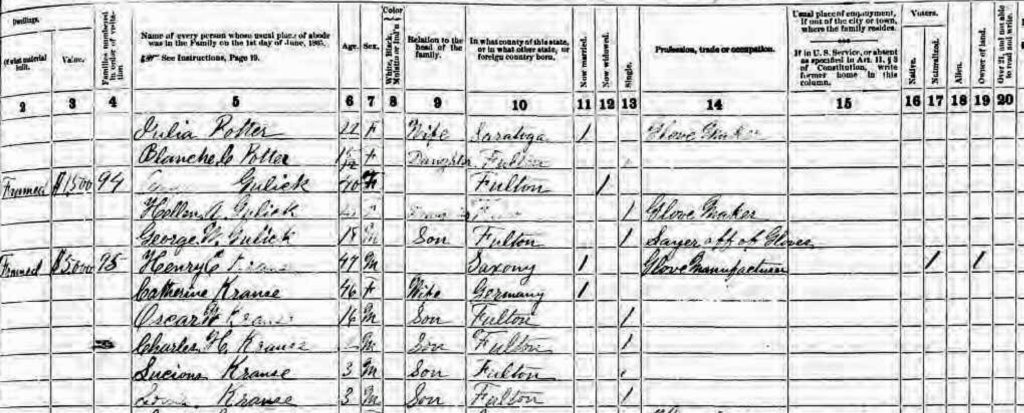 Dwellings.
Of what material built.
Value.
Families numbered in order of visitation
Name of every person whose usual place of abode was in the Family on the 1st day of June, 1865.
See Instructions, Page 19.
Age.
Sex.
Color
White, Black, Mulatto or Ind'n
Relation to the head of the family.
In what county of this state, or in what other state, or foreign country born.
Now married.
Now widowed.
Single.
Profession, trade or occupation.
Usual place of employment, if out of the city or town, where the family resides.
If in U. S. Service, or absent as specified in Art. II, § 3 of Constitution, write former home in this column.
Voters.
Native.
Naturalized.
Alien.
Owner of land.
Over 21, and not able to read and write.
2 3 4 5 6 7 8 9 10 11 12 13 14 15 16 17 18 19 20
Julia Potter 22 F Wife Saratoga 1 Glove Maker
Blanche C Potter F Daughter Fulton
Framed $1500 94 Gulick 40 F Fulton 1
Hellen A. Gulick 1 Glove Maker
George W. Gulick 18 M Son Fulton 1 Sayer off of Gloves
Framed 95 Henry C 47 M Saxony 1 Glove Manufacturer 1 1
Catherine Krause 46 F Wife Germany 1
Oscar W Kraus 16 M Son Fulton 1
Charles H. Krause M Son Fulton 1
Lucious Krause 3 M Son Fulton
Krause 3 M Son Fulton 1